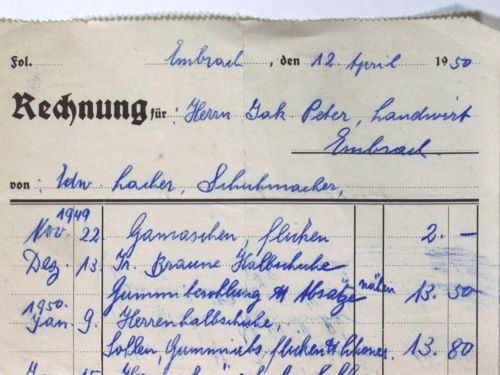 Fol. Embrach, den 12 April 1950
Rechnung für: Herrn Jak Peter, Landwirt
Embrach.
von: Edw Lacher, Schuhmacher,
1949
Nov. 22 Gamaschen, flicken 2.-
Dez. 13. Braune Halbschuhe
Gummibesohlung Absätze nähen 13.50
1950.
Jan. 9. Herrenhalbschuhe,
Sohlen, Gummiabs. flicken 13.80
15